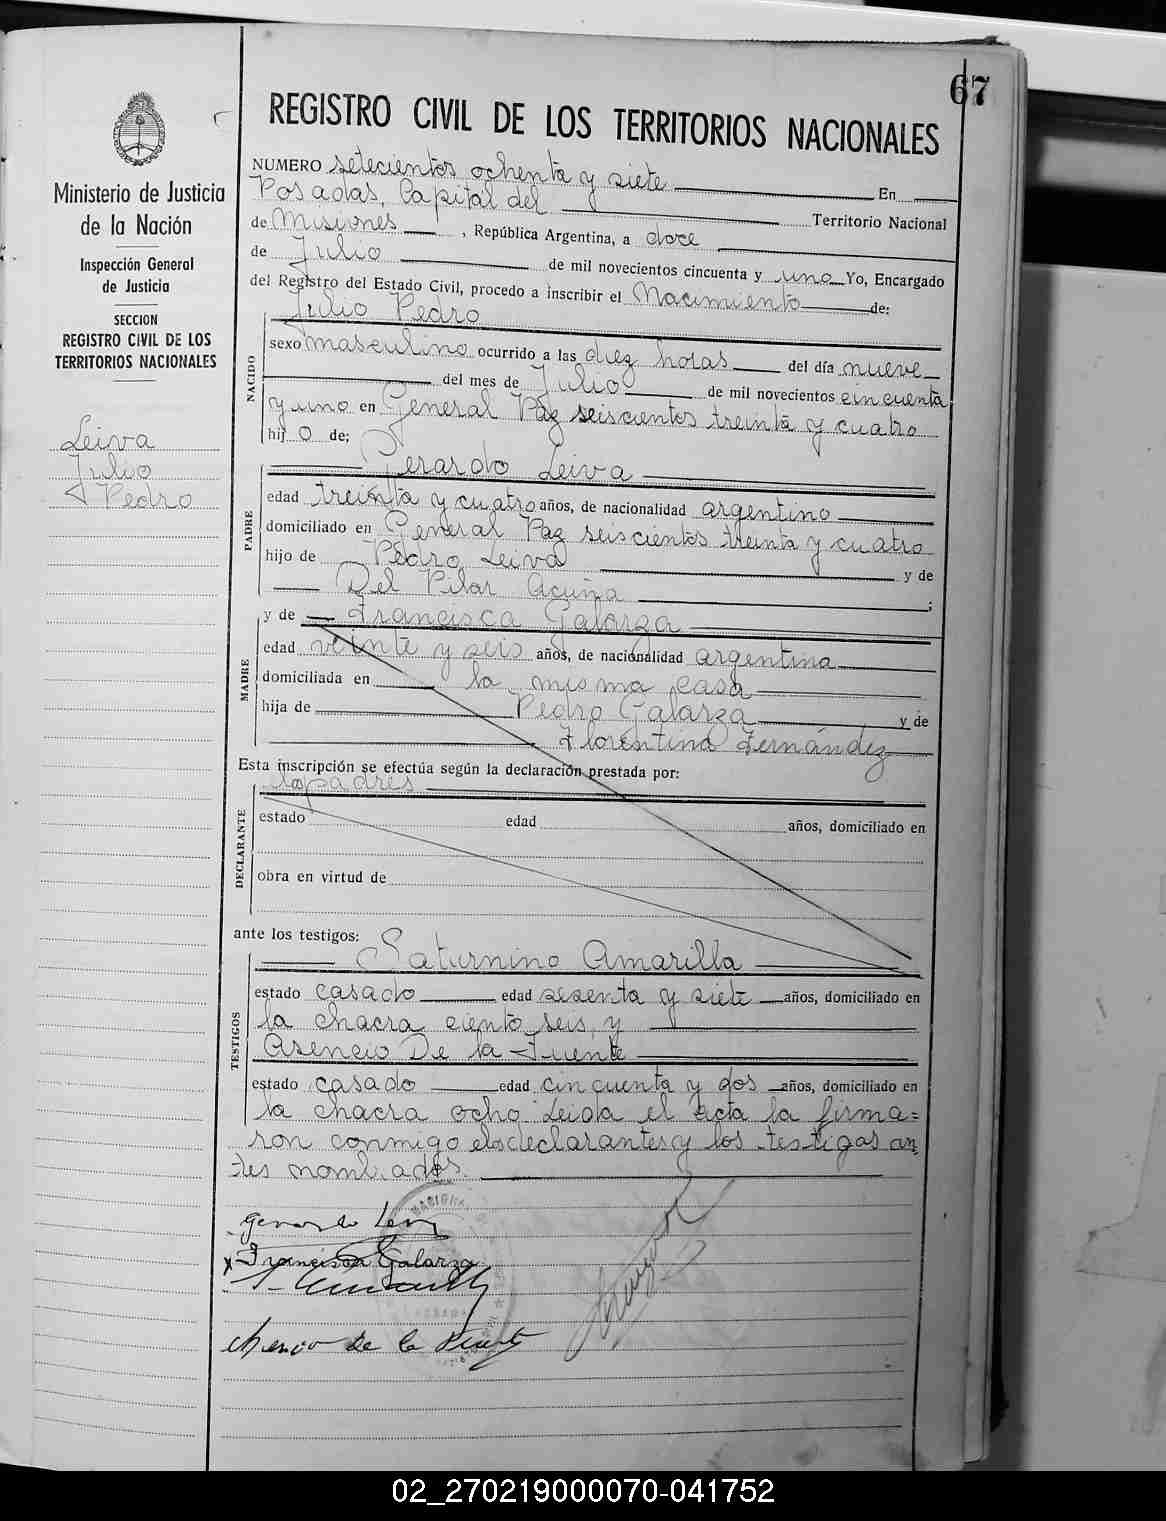 67
REGISTRO CIVIL DE LOS TERRITORIOS NACIONALES
Ministerio de Justicia
de la Nación
Inspección General
de Justicia
SECCION
REGISTRO CIVIL DE LOS
TERRITORIOS NACIONALES
Leiva
Julio
Pedro
NUMERO setecientos ochenta y siete En
Posadas, Capital del Territorio Nacional
de Misiones, República Argentina, a doce
de Julio de mil novecientos cincuenta y uno Yo, Encargado
del Registro del Estado Civil, procedo a inscribir el Nacimiento de:
Julio Pedro
NACIDO
sexo masculino ocurrido a las diez horas del día nueve
del mes de Julio de mil novecientos cincuenta
y uno en General Paz seiscientos treinta y cuatro
hijo de;
Gerardo Leiva
PADRE
edad treinta y cuatro años, de nacionalidad argentino
domiciliado en General Paz seiscientos treinta y cuatro
hijo de Pedro Leiva y de
Del Pilar Acuña ;
y de Francisca Galarza
MADRE
edad veinte y seis años, de nacionalidad argentina
domiciliada en la misma casa
hija de Pedro Galarza y de
Florentina Fernández
Esta inscripción se efectúa según la declaración prestada por:
los padres
DECLARANTE
estado edad años, domiciliado en
obra en virtud de
ante los testigos:
Saturnino Amarilla
TESTIGOS
estado casado edad sesenta y siete años, domiciliado en
la chacra ciento seis, y
Asencio De la Fuente
estado casado edad cincuenta y dos años, domiciliado en
la chacra ocho. Leida el acta la firma=
ron conmigo los declarantes y los testigos an
tes nombrados.
Gerardo Leiva
x Francisca Galarza
de la Fuente
02_270219000070-041752